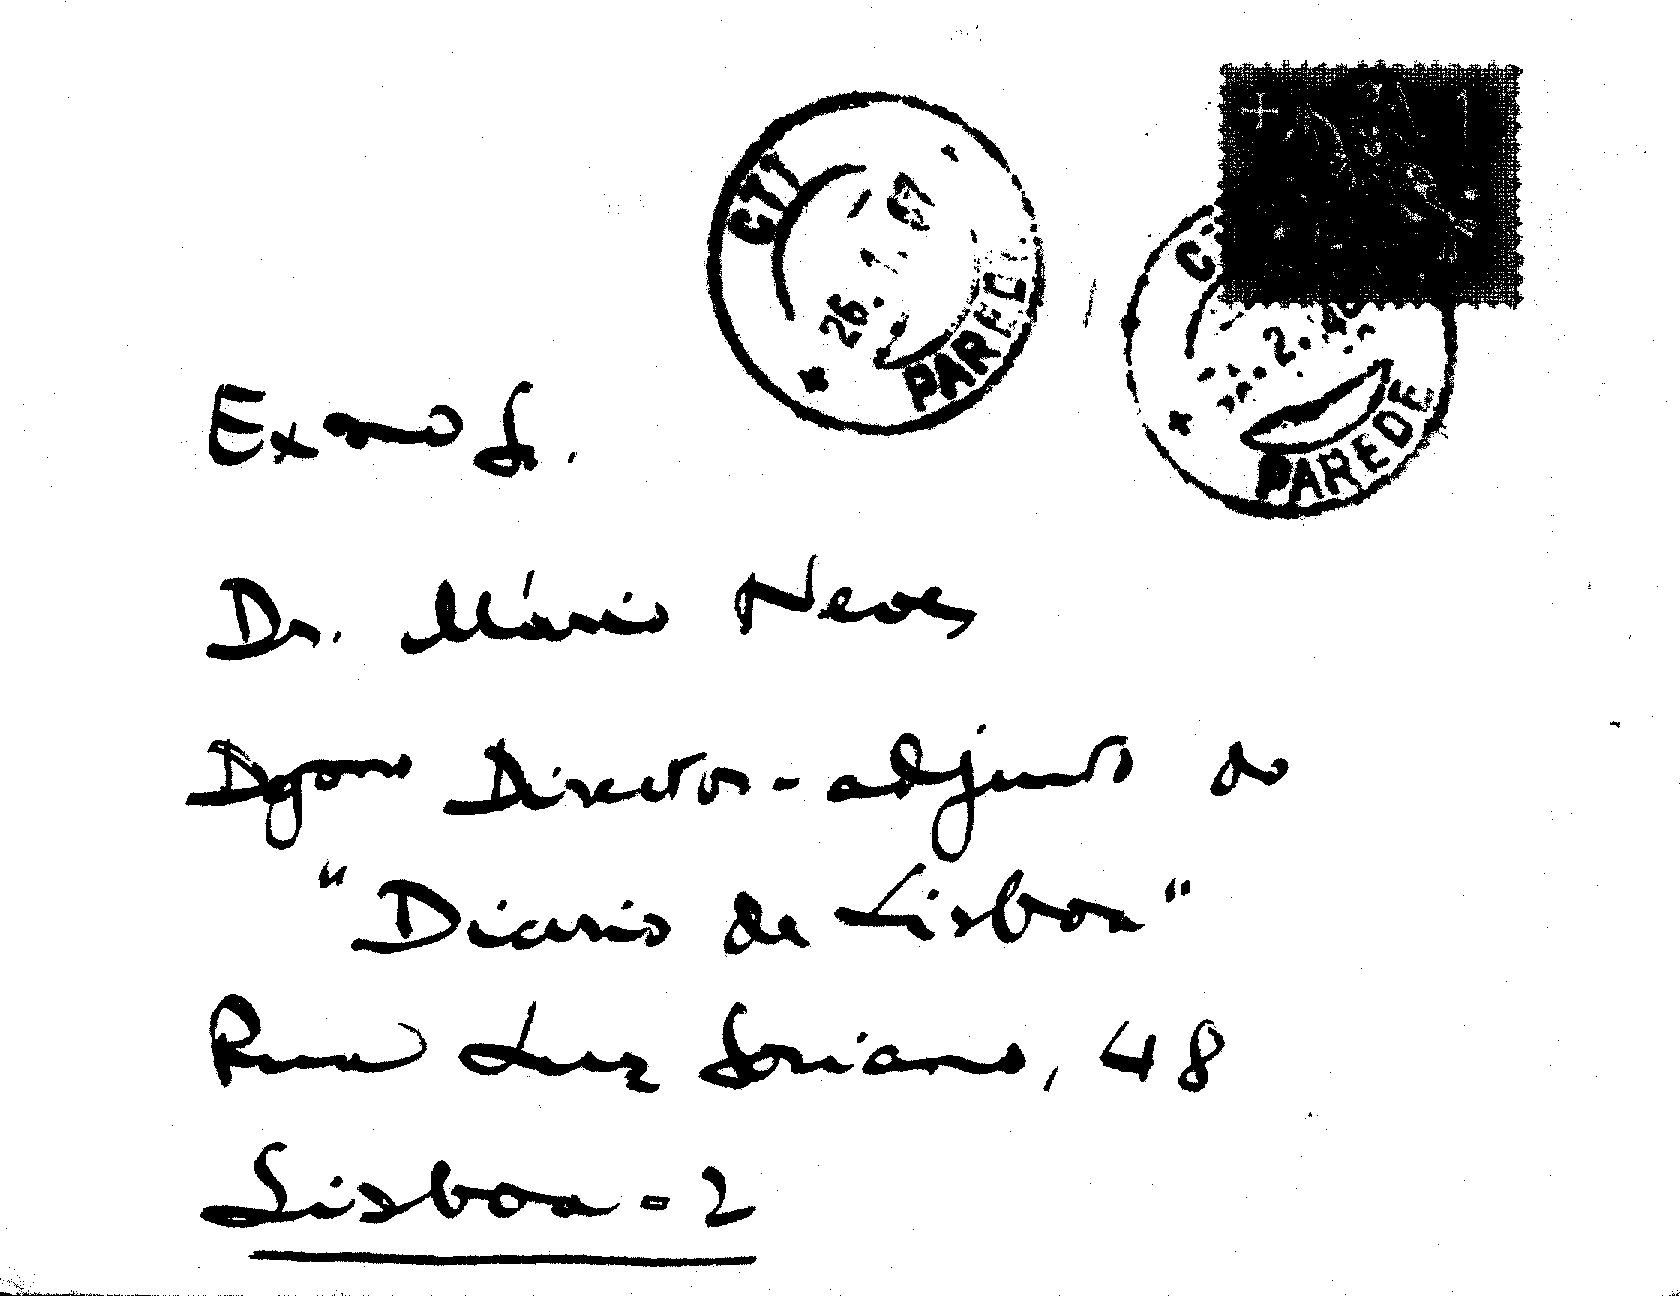 CTT
26.1.67
PAREDE
PAREDE
Exmo Sr.
Dr. Mário Neves
Dgmo Director-adjunto do
"Diario de Lisboa"
Rua Luz Soriano, 48
Lisboa-2